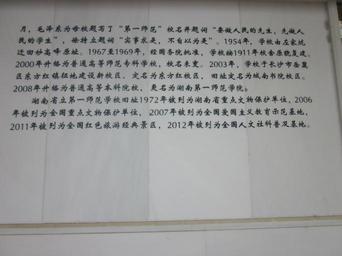 月，毛泽东为母校题写了“第一师范”校名并题词“要做人民的先生，先做人
民的学生”，毋持立题词“实事求是，不自以为是”。1954年，学校由左家垅
迁回妙高峰原址。1967至1969年，经国务院批准，学校按1911年校舍原貌复建。
2000年升格为普通高等师范专科学校，校名未变。2003年，学校于长沙市岳麓
区东方红镇征地建设新校区，定名为东方红校区，旧址定名为城南书院校区。
2008年升格为普通高等本科院校，更名为湖南第一师范学院。
湖南省立第一师范学校旧址1972年被列为湖南省重点文物保护单位，2006
年被列为全国重点文物保护单位，2007年被列为全国爱国主义教育示范基地，
2011年被列为全国红色旅游经典景区，2012年被列为全国人文社科普及基地。